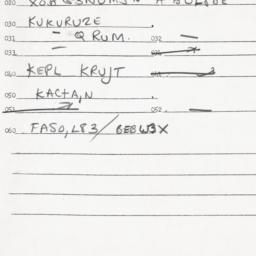 030 KUKURUZE .
031 — QRUM. 032 —
033 —
040 KEPL KRUJT
050 KACTA,N .
051 052. —
060 FASO,L83/BEBW3X